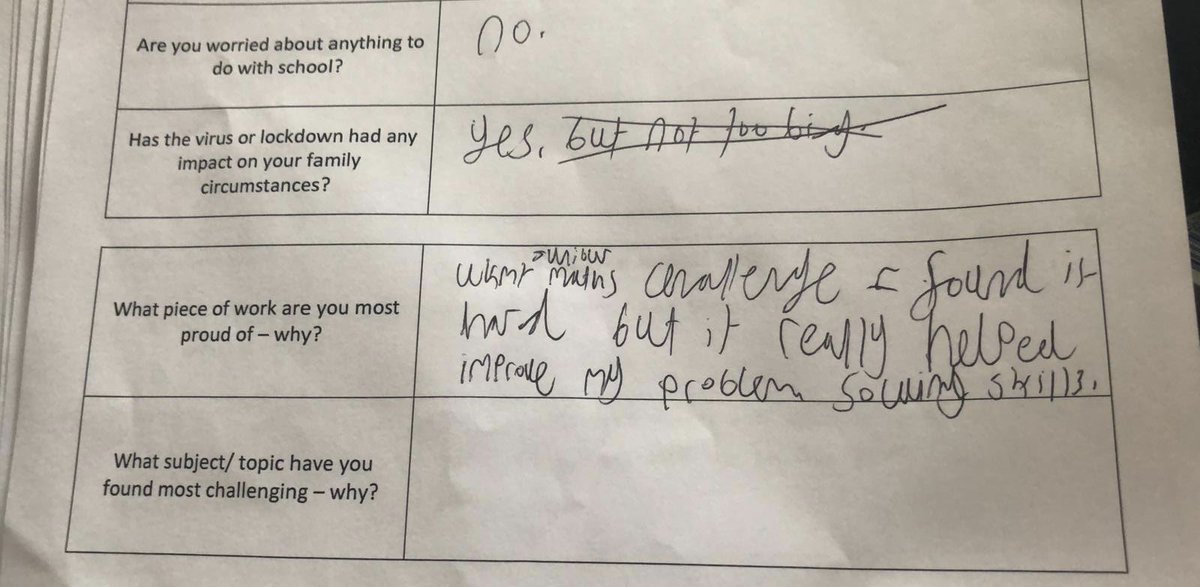 Are you worried about anything to
do with school?
no.
Has the virus or lockdown had any
impact on your family
circumstances?
yes, but not too big.
What piece of work are you most
proud of – why?
Junior
UKMT maths challenge I found it
hard but it really helped
improve my problem solving skills.
What subject/ topic have you
found most challenging – why?